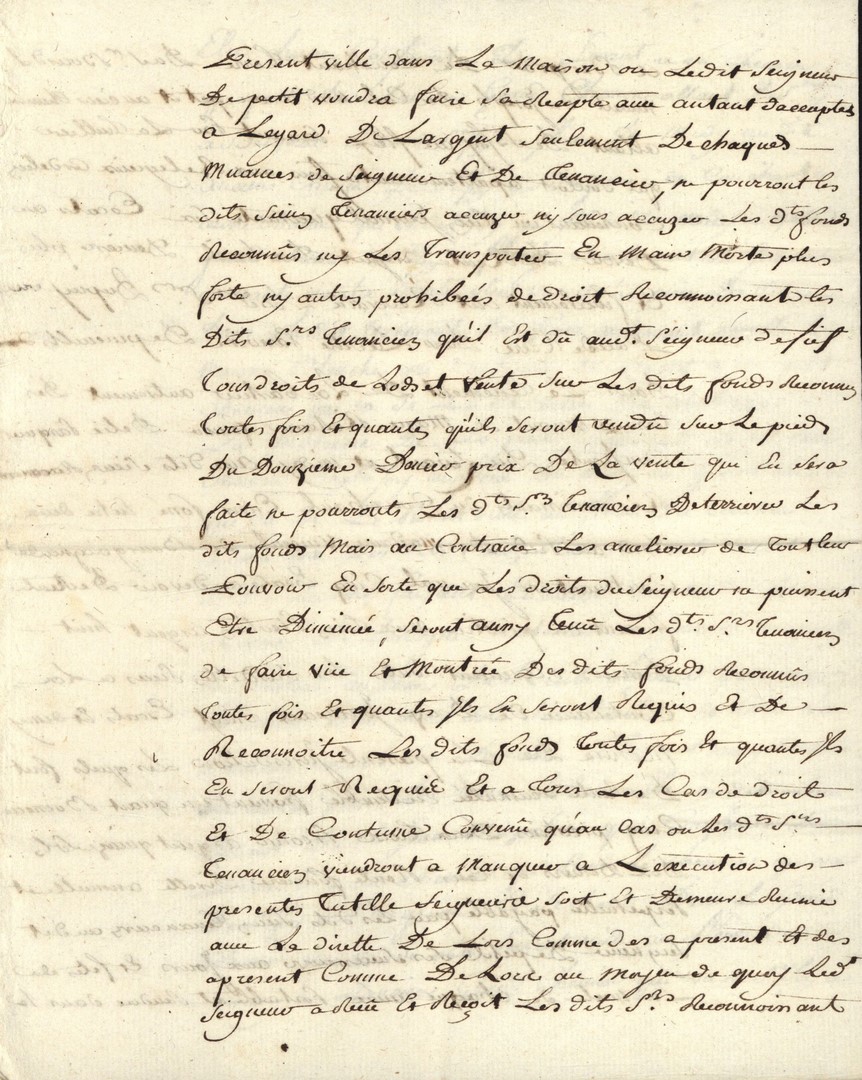 Present ville dans La Maison ou Ledit Seigneur
De petit voudra faire sa Recepte avec autant d'accaptes
a Legard De Largent Seulement De chaques
Muances de Seigneur Et De Tenancier, ne pourront les
dits Sieurs Tenanciers accuzer ny sous accuzer Les dts fonds
Reconnûs ny Les Transporter En Main Morte plus
forte ny autres prohibeés de droit Reconnoissant les
Dits S.rs Tenanciers qu'il Est dû aud.t Séigneur de fief
Tous droits de Lods et vente sur Les dits fonds Reconnus
Toutes fois Et quantes qu'ils Seront vendu sur Le pied
Du Douzieme Denier prix De La vente qui En sera
faite ne pourronts Les dts S.rs Tenanciers Deterriorer Les
dits fonds Mais au Contraire Les ameliorer de Tout leur
Pouvoir En sorte que Les droits du Seigneur ne puissent
Etre Diminüé, Seront aussy Tenû Les d.ts S.rs Tenanciers
de faire vüe Et Montrée Des dits fonds Reconnûs
Toutes fois Et quantes Jls En Seront Requis Et De
Reconnoitre Les dits fonds Toutes fois Et quantes Jls
En Seront Requis Et a Tous Les Cas de droit
Et De Coutume Convenû qu'au Cas ou Les d.ts S.rs
Tenanciers viendront a Manquer a L'exécution des
presentes Lutille Seigneurie soit Et Demeure Reunie
avec La dirette De Lors Comme des a present Et des
apresent Comme De Lors au moyen de quoy Led.t
Seigneur a Recû Et Reçoit Les dits S.rs Reconnoissant